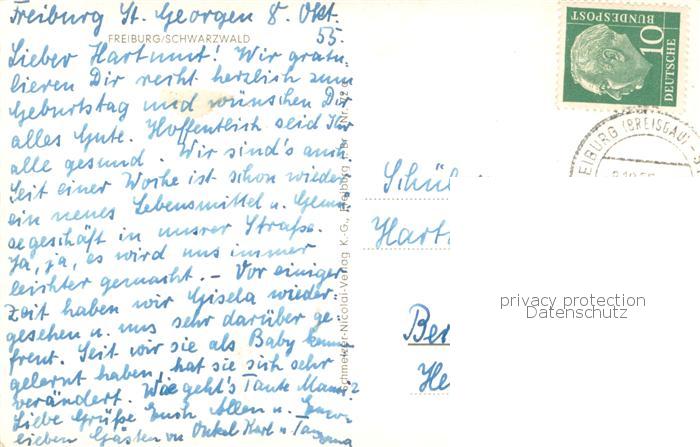 Freiburg St. Georgen 8. Okt.
55.
FREIBURG/SCHWARZWALD
Lieber Hartmut! Wir gratu-
lieren Dir recht herzlich zum
Geburtstag und wünschen Dir
alles Gute. Hoffentlich seid Ihr
alle gesund. Wir sind's auch.
Seit einer Woche ist schon wieder
ein neues Lebensmittel u. Gemü-
segeschäft in unsrer Straße.
Ja, ja, es wird uns immer
leichter gemacht. – Vor einiger
Zeit haben wir Gisela wieder-
gesehen u. uns sehr darüber ge-
freut. Seit wir sie als Baby kenn
gelernt haben, hat sie sich sehr
verändert. Wie geht's Tante
Liebe Grüße Euch Allen u.
lieben Gästen von Onkel Karl u.
Schmelzer-Nicolai-Verlag K.-G., Freiburg i. Br.
10
DEUTSCHE
BUNDESPOST
EIBURG (BREISGAU)
Schül
Hart
Ber
He
privacy protection
Datenschutz